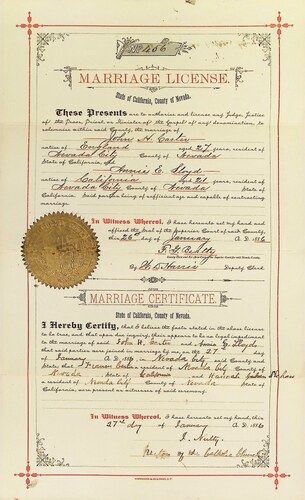 No 466
MARRIAGE LICENSE.
State of California, County of Nevada.
These Presents are to authorize and license any Judge, Justice
of the Peace, Priest, or Minister of the Gospel of any denomination, to
solemnize within said County, the marriage of
John H. Carter
native of England aged 27 years, resident of
Nevada City County of Nevada
State of California and
Annie E. Lloyd
native of California aged 21 years, resident of
Nevada City County of Nevada
State of California. Said parties being of sufficient age and capable of contracting
marriage.
In Witness Whereof, I have hereunto set my hand and
affixed the Seal of the Superior Court of said County,
this 26th day of January A. D. 1886
By Deputy Clerk
MARRIAGE CERTIFICATE.
State of California, County of Nevada.
I Hereby Certify, that I believe the facts stated in the above license
to be true, and that upon due inquiry, there appears to be no legal impediment
to the marriage of said John H. Carter and Annie Lloyd
that said parties were joined in marriage by me, on the 27th day of
January A. D. 1886, in Nevada City, said County and
State; that a resident of Nevada City County of
Nevada State of California and Hannah
a resident of Nevada City County of Nevada State of
California, were present as witnesses of said ceremony.
In Witness Whereof, I have hereunto set my hand, this
27th day of January A. D. 1886
Rector of the Catholic Church